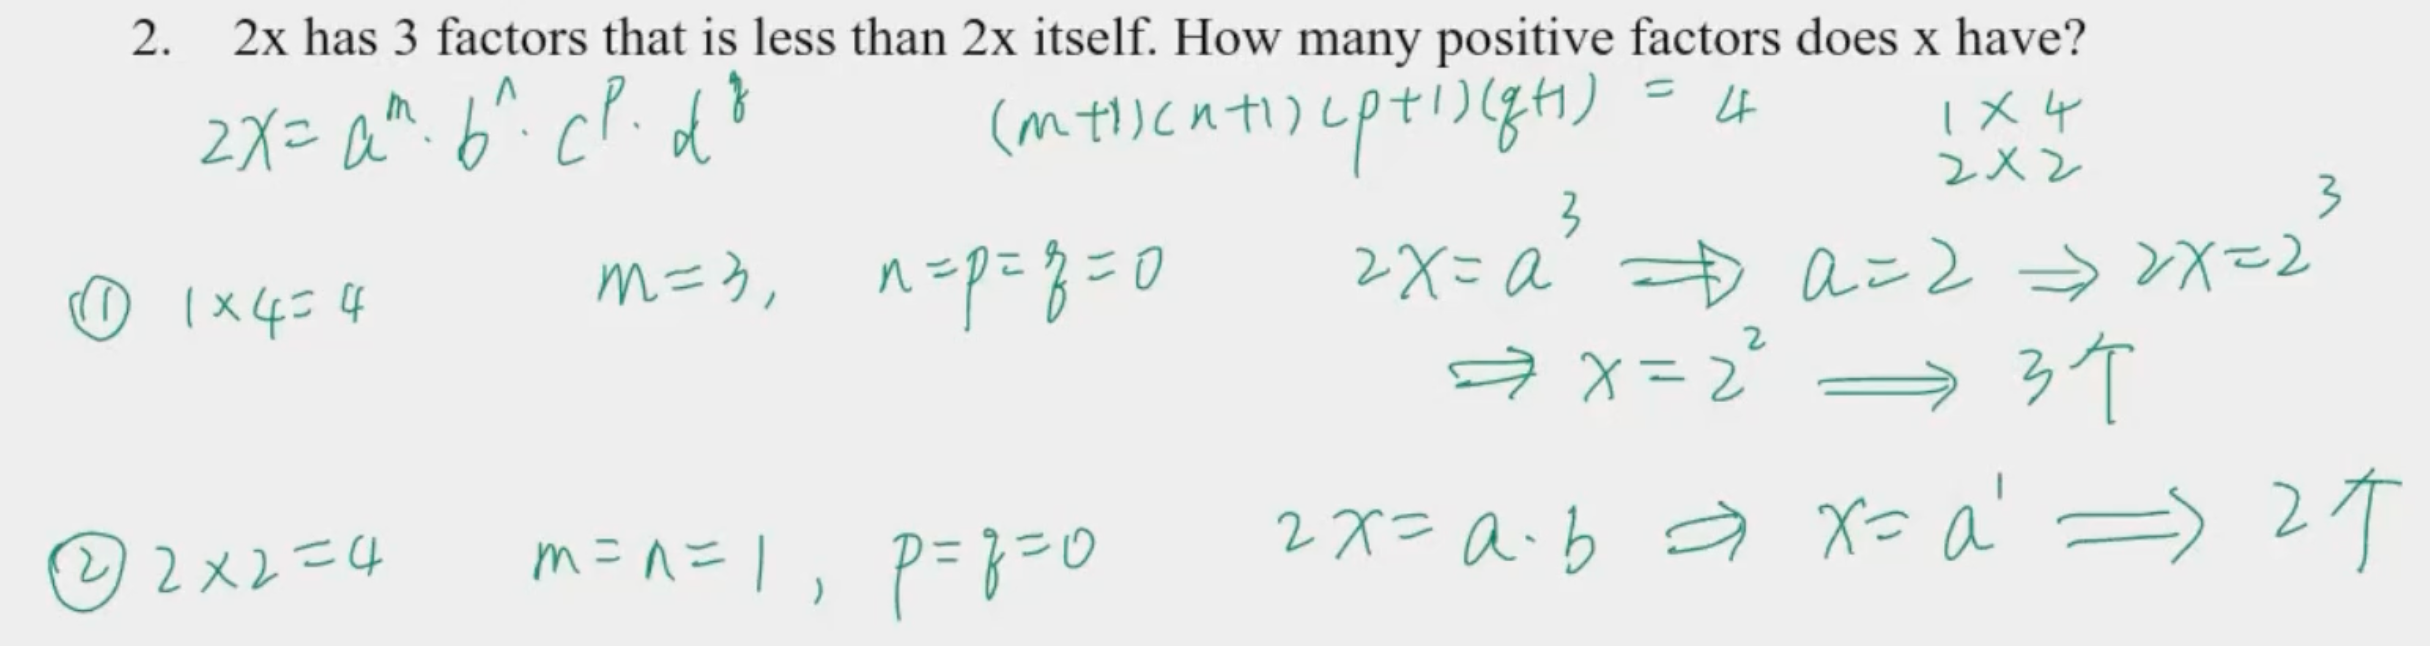 2. 2x has 3 factors that is less than 2x itself. How many positive factors does x have?
2x = a^m · b^n · c^p · d^q (m+1)(n+1)(p+1)(q+1) = 4 1×4
2×2
① 1×4=4 m=3, n=p=q=0 2x=a³ ⇒ a=2 ⇒ 2x=2³
⇒ x=2² ⟹ 3个
② 2×2=4 m=n=1, p=q=0 2x=a·b ⇒ x=a¹ ⟹ 2个